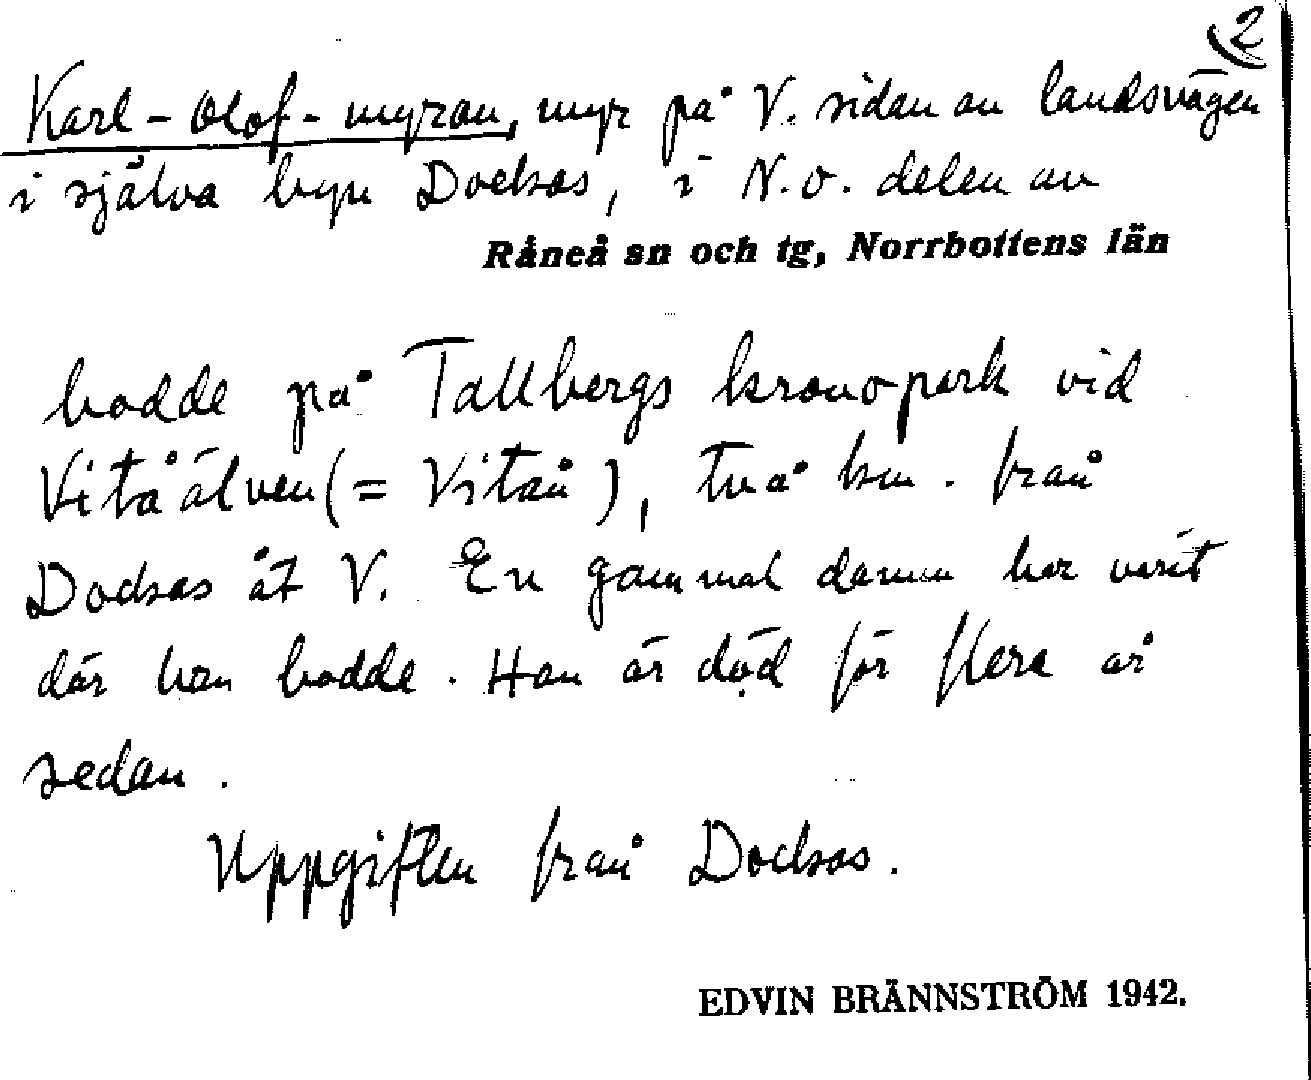 2
Karl-Olof-myran, myr på V. sidan av landsvägen
i själva byn Dockas, i N.O. delen av
Råneå sn och tg, Norrbottens län
bodde på Tallbergs kronopark vid
Vitåälven (= Vitån), två km. från
Dockas åt V. En gammal damm har varit
där han bodde. Han är död för flera år
sedan.
Uppgiften från Dockas.
EDVIN BRÄNNSTRÖM 1942.